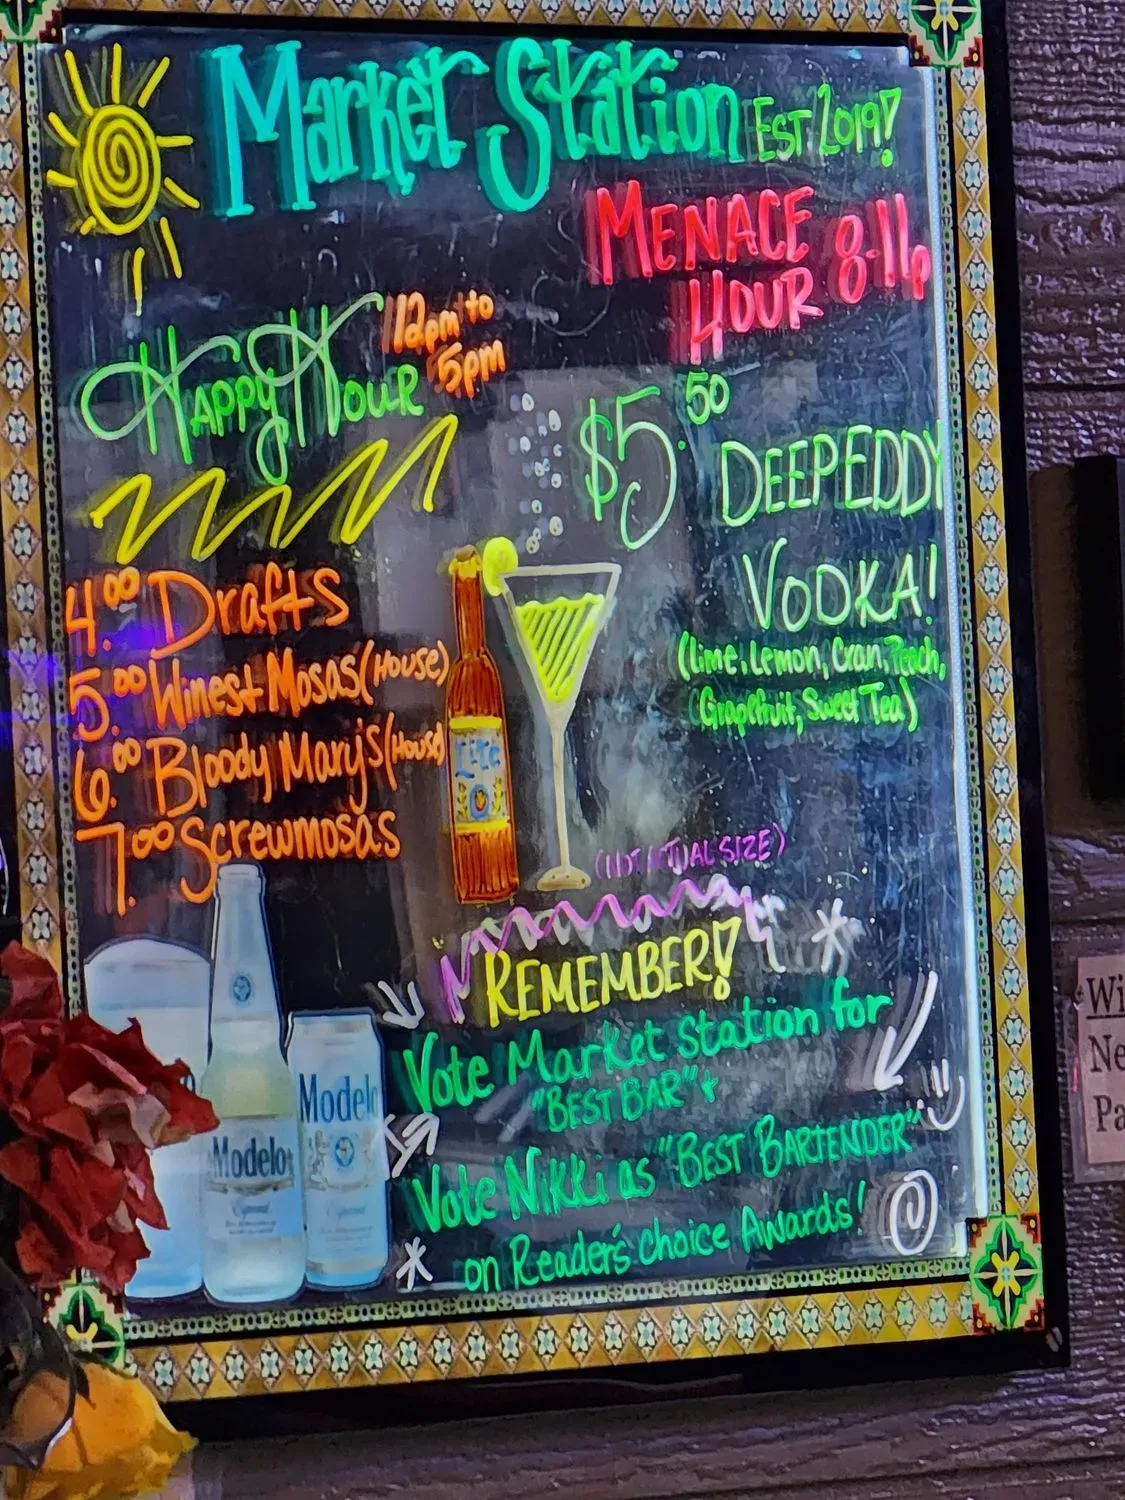 Market Station EST. 2019!
MENACE
HOUR 8-11p
Happy Hour 12pm to
5pm
$5.50
DEEPEDDY
VODKA!
(Lime, Lemon, Cran, Peach,
(Grapefruit, Sweet Tea)
4.00 Drafts
5.00 Wines + Mosas (House)
6.00 Bloody Mary's (House)
7.00 Screwmosas
Lite
(NOT ACTUAL SIZE)
REMEMBER!
Vote Market Station for
"BEST BAR" +
Vote Nikki as "BEST BARTENDER"
on Reader's Choice Awards!
Modelo
Especial
Modelo
Especial
Wi
Ne
Pa